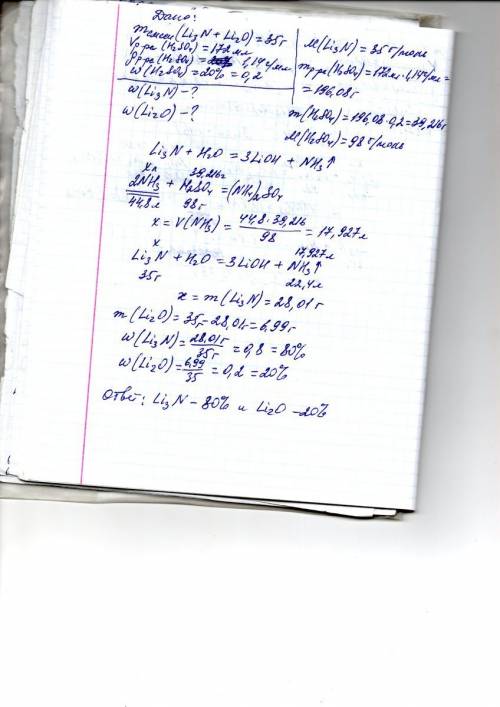 Дано:
m смеси (Li₃N + Li₂O) = 35 г
Vр-ра (H₂SO₄) = 172 мл
ρр-ра (H₂SO₄) = 1,14 г/мл
ω(H₂SO₄) = 20% = 0,2
ω(Li₃N) - ?
ω(Li₂O) - ?
M(Li₃N) = 35 г/моль
mр-ра(H₂SO₄) = 172мл·1,14г/мл =
= 196,08 г
m(H₂SO₄) = 196,08·0,2 = 39,216г
M(H₂SO₄) = 98 г/моль
Li₃N + H₂O = 3LiOH + NH₃↑
x л 39,216г
2NH₃ + H₂SO₄ = (NH₄)₂SO₄
44,8л 98г
x = V(NH₃) = 44,8·39,216 / 98 = 17,927л
x 17,927л
Li₃N + H₂O = 3LiOH + NH₃↑
35г 22,4л
x = m(Li₃N) = 28,01 г
m(Li₂O) = 35г - 28,01г = 6,99г
ω(Li₃N) = 28,01г / 35г = 0,8 = 80%
ω(Li₂O) = 6,99 / 35 = 0,2 = 20%
Ответ: Li₃N - 80% и Li₂O - 20%